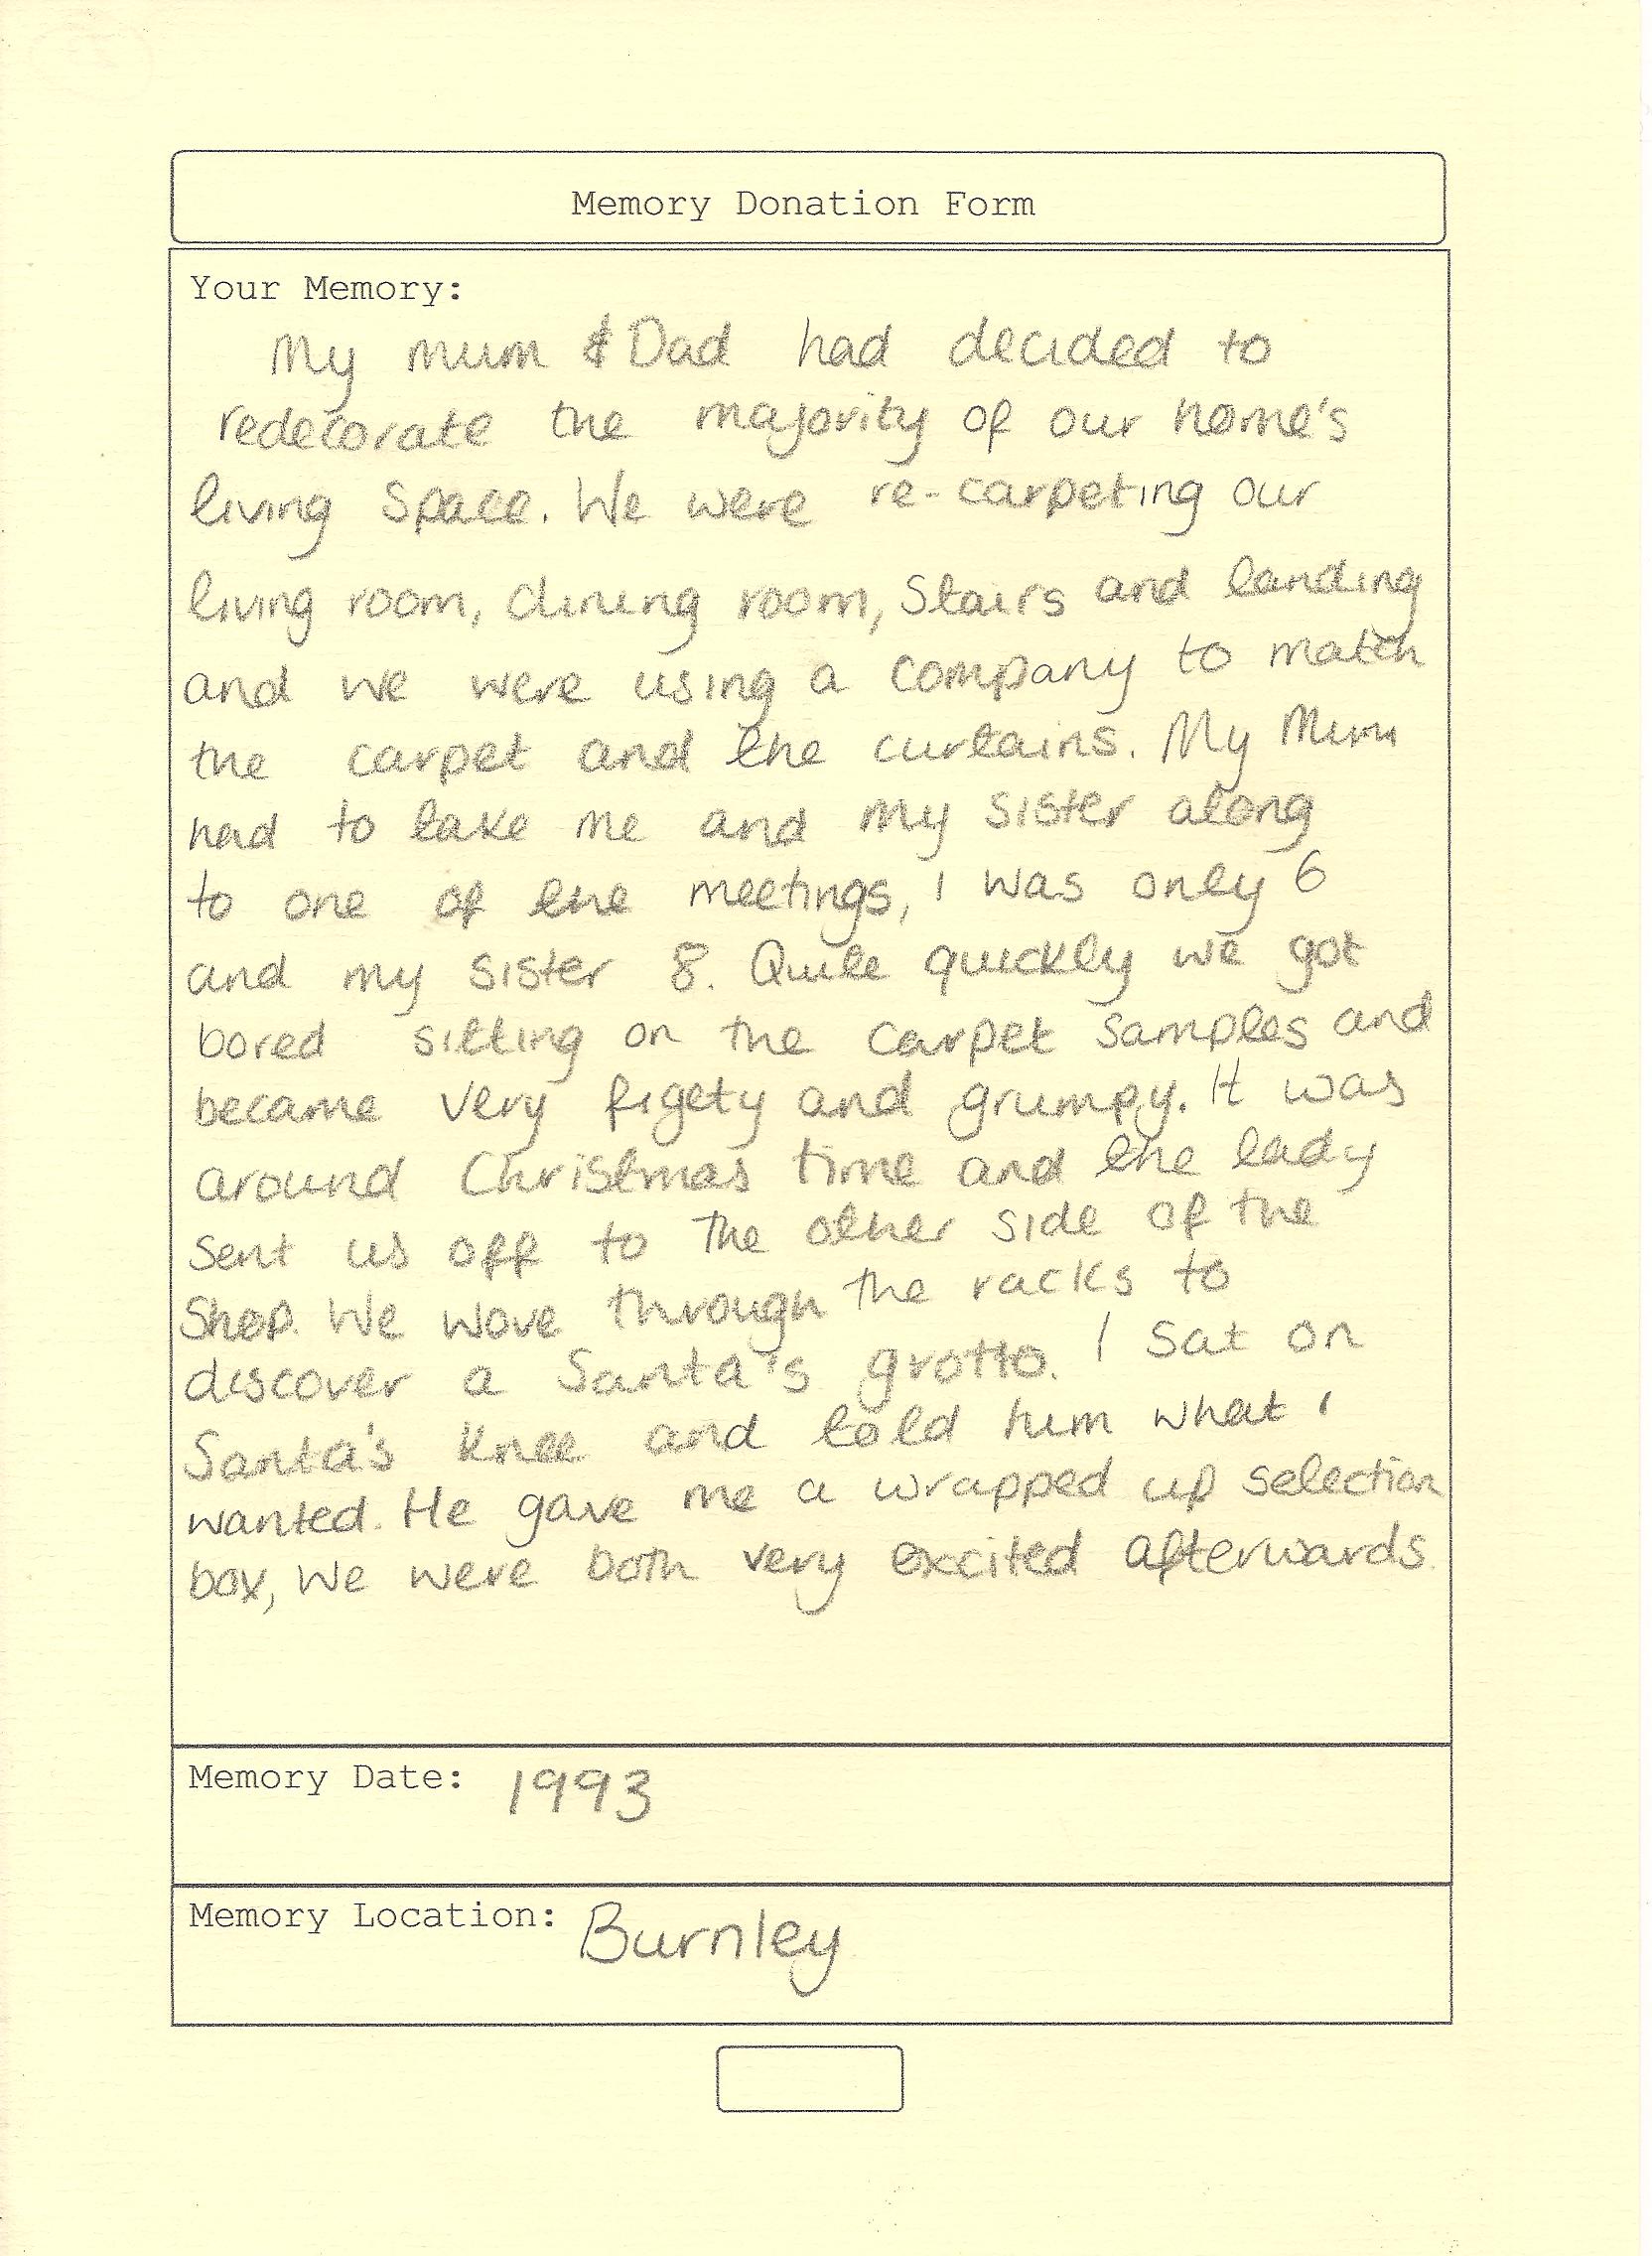 Memory Donation Form
Your Memory:
My mum & Dad had decided to
redecorate the majority of our home's
living space. We were re-carpeting our
living room, dining room, stairs and landing
and we were using a company to match
the carpet and the curtains. My Mum
had to take me and my sister along
to one of the meetings, I was only 6
and my sister 8. Quite quickly we got
bored sitting on the carpet samples and
became very figety and grumpy. It was
around Christmas time and the lady
sent us off to the other side of the
shop. We wove through the racks to
discover a Santa's grotto. I sat on
Santa's knee and told him what I
wanted. He gave me a wrapped up selection
box, We were both very excited afterwards.
Memory Date: 1993
Memory Location: Burnley